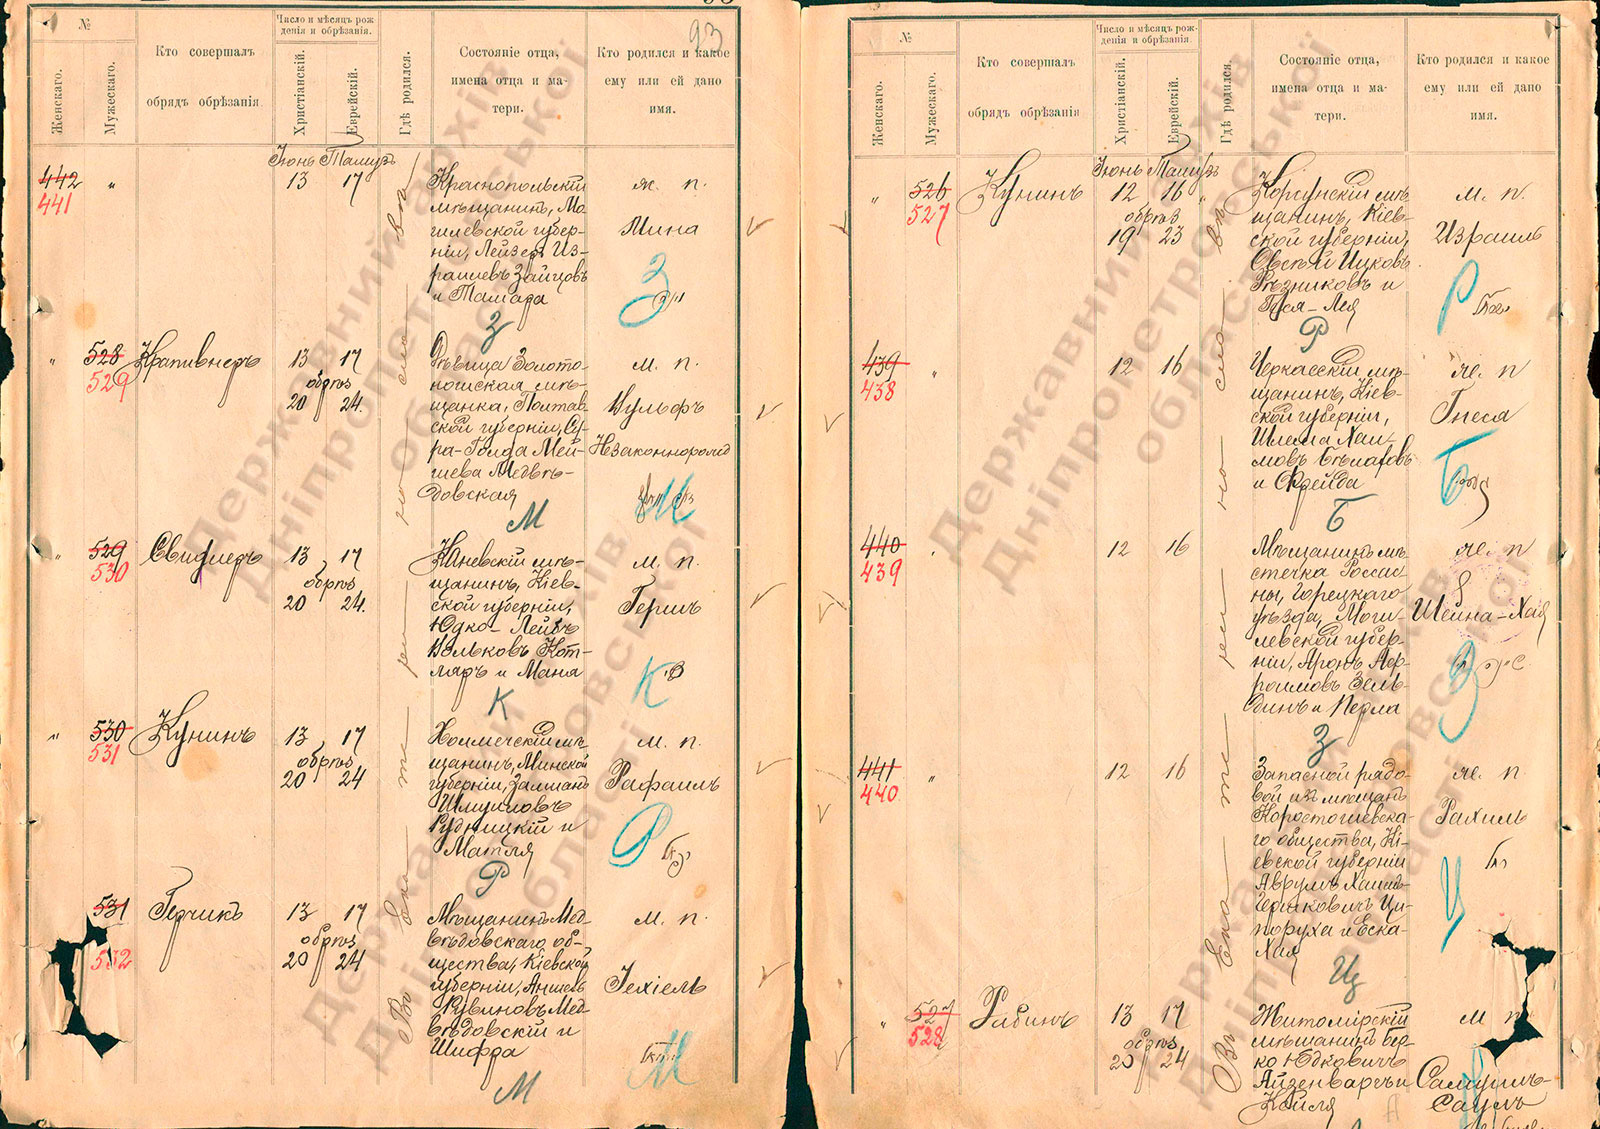 93
№
Женскаго.
Мужескаго.
Кто совершалъ
обрядъ обрѣзанія.
Число и мѣсяцъ рож
денія и обрѣзанія.
Христіанскій.
Еврейскій.
Гдѣ родился.
Состояніе отца,
имена отца и ма-
тери.
Кто родился и какое
ему или ей дано
имя.
Іюнь Тамузъ
442
441
"
13 17
Краснопольскій
мѣщанинъ, Мо-
гилевской губер-
ніи, Лейзеръ Из-
раилевъ Зайцовъ
и Тамара
ж. п.
Мина
З
З
"
528
529
Крапивнеръ
13 17
обрѣз
20 24.
Дѣвица Золото-
ношская мѣ-
щанка, Полтав-
ской губерніи, Су-
ра-Голда Мей-
шева Медвѣ-
довская
м. п.
Вульфъ
Незаконнорожд
М
М
"
529
530
Свидлеръ
13 17
обрѣз
20 24.
Каневскій мѣ-
щанинъ, Кіев-
ской губерніи,
Юдко-Лейбъ
Вольковъ Кот-
ляръ и Мана
м. п.
Гершъ
К
К
"
530
531
Кунинъ
13 17
обрѣз
20 24
Холмечскій мѣ-
щанинъ, Минской
губерніи, Залманъ
Шмуиловъ
Рудницкій и
Матля
м. п.
Рафаилъ
Р
Р
531
532
Герчикъ
13 17
обрѣз
20 24
Мѣщанинъ Мед-
вѣдовскаго об-
щества, Кіевской
губерніи, Аншель
Рувиновъ Мед-
вѣдовскій и
Шифра
м. п.
Іехіель
М
М
Въ Екатеринославѣ
№
Женскаго.
Мужескаго.
Кто совершалъ
обрядъ обрѣзанія
Число и мѣсяцъ рож-
денія и обрѣзанія.
Христіанскій.
Еврейскій.
Гдѣ родился.
Состояніе отца,
имена отца и ма-
тери.
Кто родился и какое
ему или ей дано
имя.
Іюнь Тамузъ
"
526
527
Кунинъ
12 16
обрѣз
19 23
Корсунскій мѣ-
щанинъ, Кіев-
ской губерніи,
Овсѣй Ицковъ
Рѣзниковъ и
Гися-Лея
м. п.
Израиль
Р
Р
439
438
"
12 16
Черкасскій мѣ-
щанинъ, Кіев-
ской губерніи,
Шлема Хаи-
мовъ Бѣлаговъ
и Фрейда
ж. п
Гнеся
Б
Б
440
439
12 16
Мѣщанинъ мѣ-
стечка Россас-
ны, Горецкаго
уѣзда, Моги-
левской губер-
ніи, Аронъ Аф-
роимовъ Зель-
динъ и Перла
ж. п
Шейна-Хая
З
З
441
440
"
12 16
Запасной рядо-
вой изъ мѣщанъ
Коростошевска-
го общества, Кі-
евской губерніи
Аврумъ Хаимъ-
Гершковичъ Ци-
поруха и Еска-
Хая
ж. п
Рахиль
Ц
Ц
"
527
528
Рабинъ
13 17
обрѣз
20 24
Житомірскій
мѣщанинъ Бер-
ко Юдковичъ
Айзенварсъ и
Кейля
м п
Самуилъ-
Саулъ
Въ Екатеринославѣ
Державний архів
Дніпропетровської
області